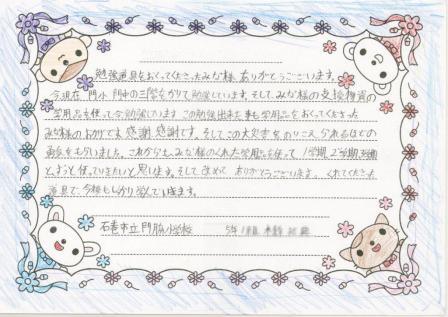 勉強道具をおくってくださったみな様、ありがとうございます。
今現在、門小 門中の三階をかりて勉強しています。そして、みな様の支援物資の
学用品を使って今勉強しています この勉強出来る事も学用品をおくってくださった
みな様のおかげでよ 感謝 感謝です。そしてこの大災害をのりこえられるほどの
勇気をもらいました。これからもみな様のくれた学用品を使って 1学期、2学期、3学期
とずっと使っていきたいと思います。そして改めて ありがとうございます。くれてくださった
道具で、今後もしっかり学んで行きます。
石巻市立門脇小学校 5年